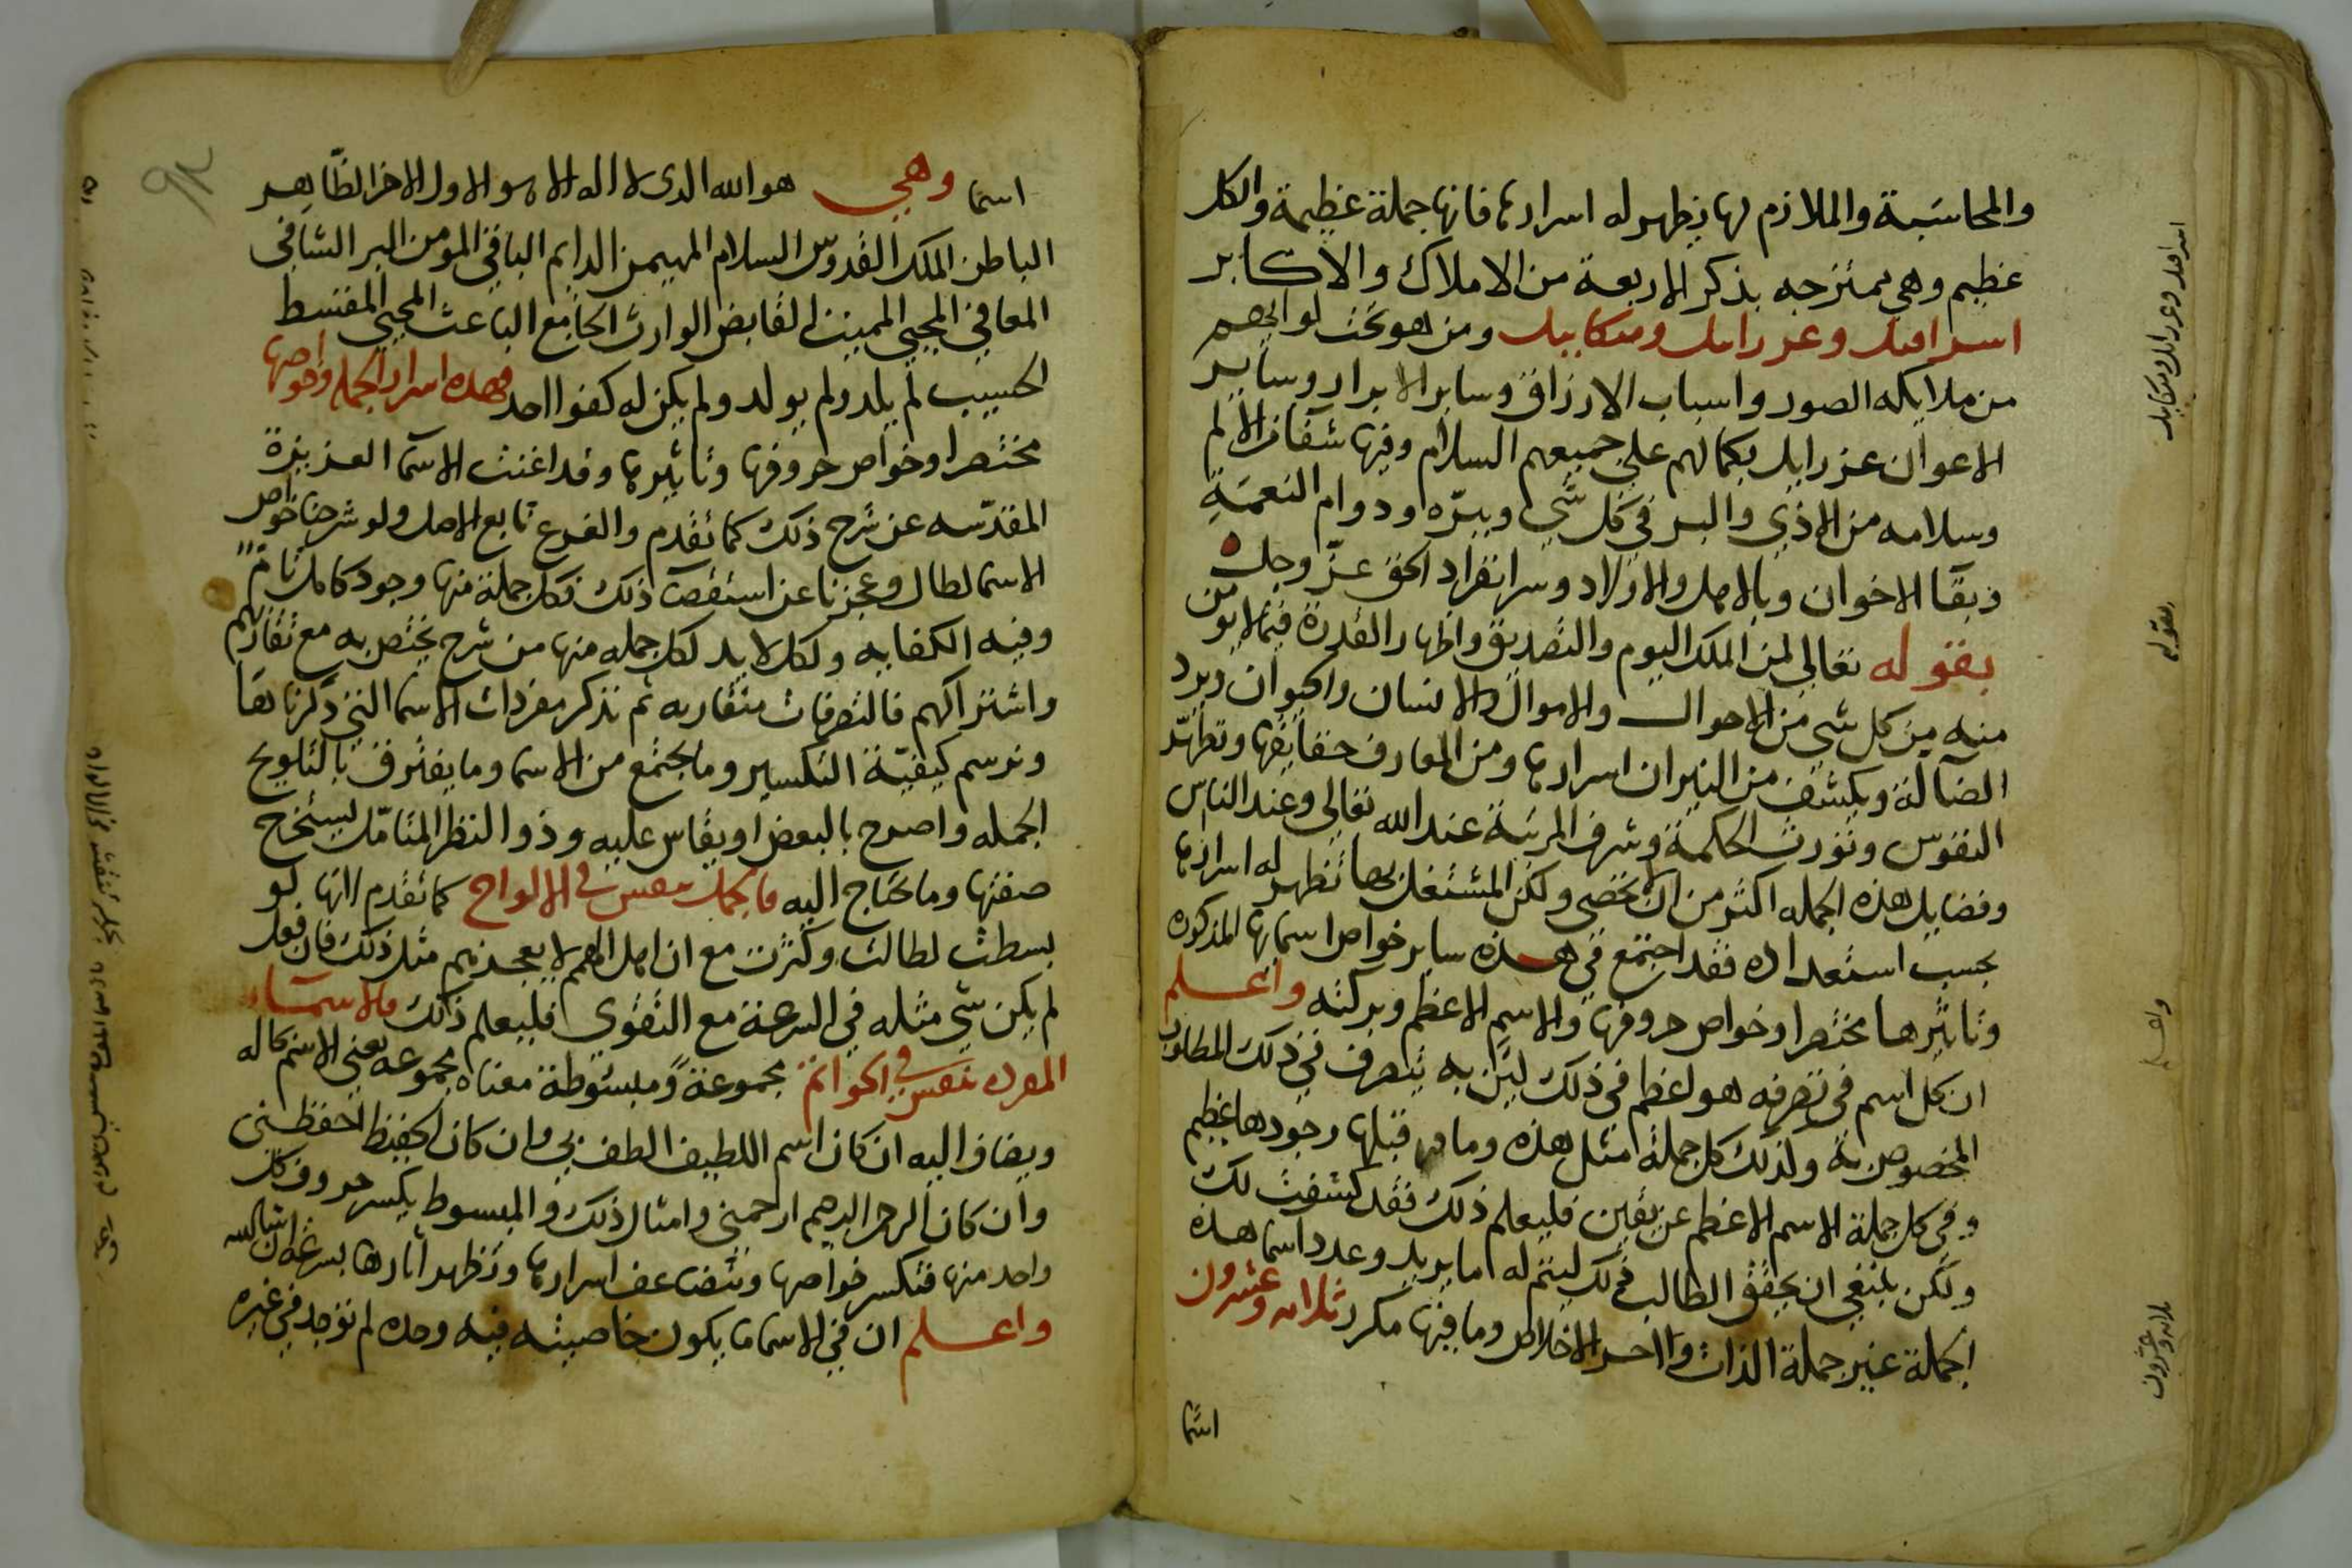 والمحاسبة والملازم لها يظهر له اسرارها فانها جملة عظيمة والكل
عظيم وهي ممتزجه بذكر الاربعة من الاملاك والاكابر
اسرافيل وعزرائيل وميكاييل ومن هو تحت لوائهم
من ملايكه الصور واسباب الارزاق وساير الابرار وساير
الاعوان عزرايل بكمالهم على جميعهم السلام وفيها شفا من الالم
وسلامه من الاذي والبر في كل شي ويبره ودوام النعمة
وبقآ الاخوان وبالاهل والاولاد وسر انفراد الحق عزّ وجل
بقوله تعالي لمن الملك اليوم والتصديق واظهار القدرة فيما لايومن
منه من كل شي من الاحوال والاموال والانسان والحيوان ويرد
الضآلة ويكشف من النيران اسرارها ومن المعارف حقايقها وتطهّر
النفوس وتورث الحكمة وشرف المرتبة عند الله تعالي وعند الناس
وفضايل هذه الجمله اكثر من ان تحصى ولكن المشتغل بها تظهر له اسرارها
بحسب استعداده فقد اجتمع في هذه ساير خواص اسمايها المذكوره
وتاثيرها مختصرا وخواص حروفها والاسم الاعظم وبركته واعلم
ان كل اسم في تصرفه هو اعظم في ذلك لمن به يتصرف في ذلك المطلوب
المخصوص به ولذلك كل جملة مثل هذه وما قبلها وجودها عظيم
وفي كل جملة الاسم الاعظم عن يقين فليعلم ذلك فقد كشفت لك
ولكن ينبغي ان يحقق الطالب ذلك ليتم له ما يريد وعدد اسما هذه
الجملة غير جملة الذات والاخلاص وما فيها مكرر ثلاثه وعشرون
اسما
اسرافيل وعزرائيل وميكاييل
بقوله
واعلم
ثلاثه وعشرون
٩٢
اسما وهي هو الله الذي لا اله الا هو الاول الاخر الظاهر
الباطن الملك القدوس السلام المهيمن الدايم الباقي المومن البر الشافي
المعافي المحيي المميت القابض الوارث الجامع الباعث المحيي المقسط
الحسيب لم يلد ولم يولد ولم يكن له كفوا احد فهذه اسرار الجمله وخواصها
مختصرا وخواص حروفها وتاثيرها وقد اغنت الاسمآ العزيزة
المقدّسه عن شرح ذلك كما تقدم والفرع تابع الاصل ولو شرحنا خواص
الاسما لطال وعجزنا عن استقصآ ذلك فكل جملة منها وجود كامل تامّ
وفيه الكفايه ولكل لابد لكل جمله منها من شرح يختص به مع تقاربهم
واشتراكهم فالتصرفات متقاربه ثم نذكر مفردات الاسما التي ذكرنا
ونرسم كيفيّة التكسير وما يجتمع من الاسما وما يفترق بالتلويح
الجمله واصرح بالبعض اويقاس عليه وذو النظر المتامّل يستخرج
صفتها وما يحتاج اليه فالجمل تنقش في الالواح كما تقدم انها لو
بسطت لطالت وكثرت مع ان اهل الهمم لا يعجزهم مثل ذلك فان فعل
لم يكن شي مثله في السرعة مع التقوي فليعلم ذلك والاسمآء
المفرده تنقش في الخواتم مجموعة ومبسوطة معناه مجموعه يعني الاسم كماله
ويضاف اليه ان كان اسم اللطيف الطف بي وان كان الحفيظ احفظني
وان كان الرحمن الرحيم ارحمني وامثال ذلك والمبسوط يكسر حروف كل
واحد منها فتكسر خواصها وتتضاعف اسرارها وتظهر اثارها بسرعة ان شا الله
واعلم ان في الاسما ما يكون خاصيته فيه وحده لم توجد في غيره